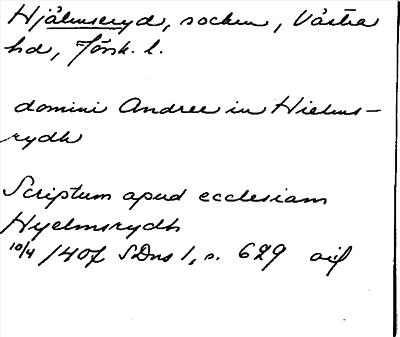 Hjälmseryd, socken, Västra
hd, Jönk. l.
domini Andree in Hielms-
rydh
Scriptum apud ecclesiam
Hyelmsrydh
10/4 1407 SDns 1, s. 629 oif